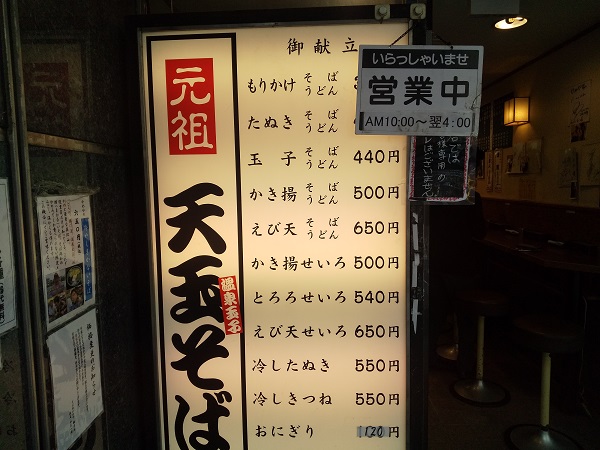 元祖
天玉そば
温泉玉子
御献立
もりかけ そば うどん
たぬき そば うどん
玉子 そば うどん 440円
かき揚 そば うどん 500円
えび天 そば うどん 650円
かき揚せいろ 500円
とろろせいろ 540円
えび天せいろ 650円
冷したぬき 550円
冷しきつね 550円
おにぎり 120円
いらっしゃいませ
営業中
AM10:00〜翌4:00